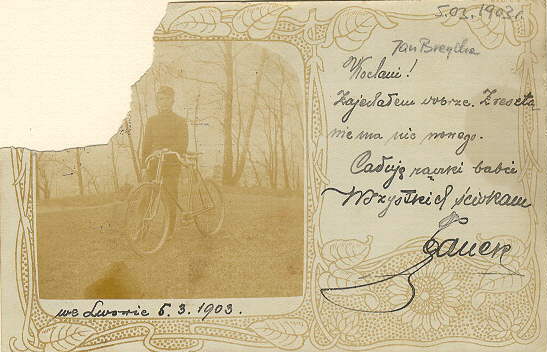 5.03.1903r.
Jan
Kochani!
Zajechałem dobrze. Zresztą
nie ma nic nowego.
Całuję rączki babci
Wszystkich ściskam
Janek
we Lwowie 5.3.1903.